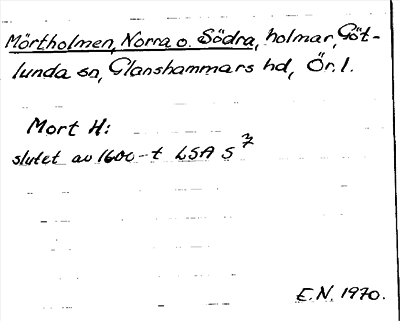 Mörtholmen, Norra o. Södra, holmar, Göt-
lunda sn, Glanshammars hd, Ör. l.
Mort H:
slutet av 1600-t LSA S 7
E.N. 1970.